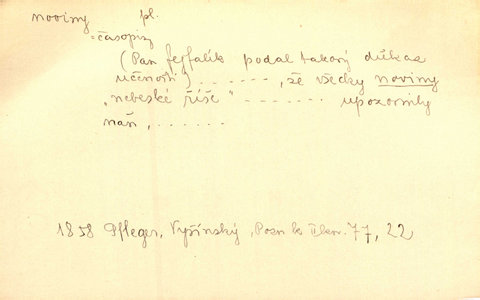 noviny pl.
= časopisy
(Pan fejfalík podal takový důkaz
účinosti) . . . . . . . , že všecky noviny
„nebeské říše“ - . . . . . . . upozornily
naň , . . . . . .
1858 Pfleger, Vyšínský, Pozn. k 77, 22